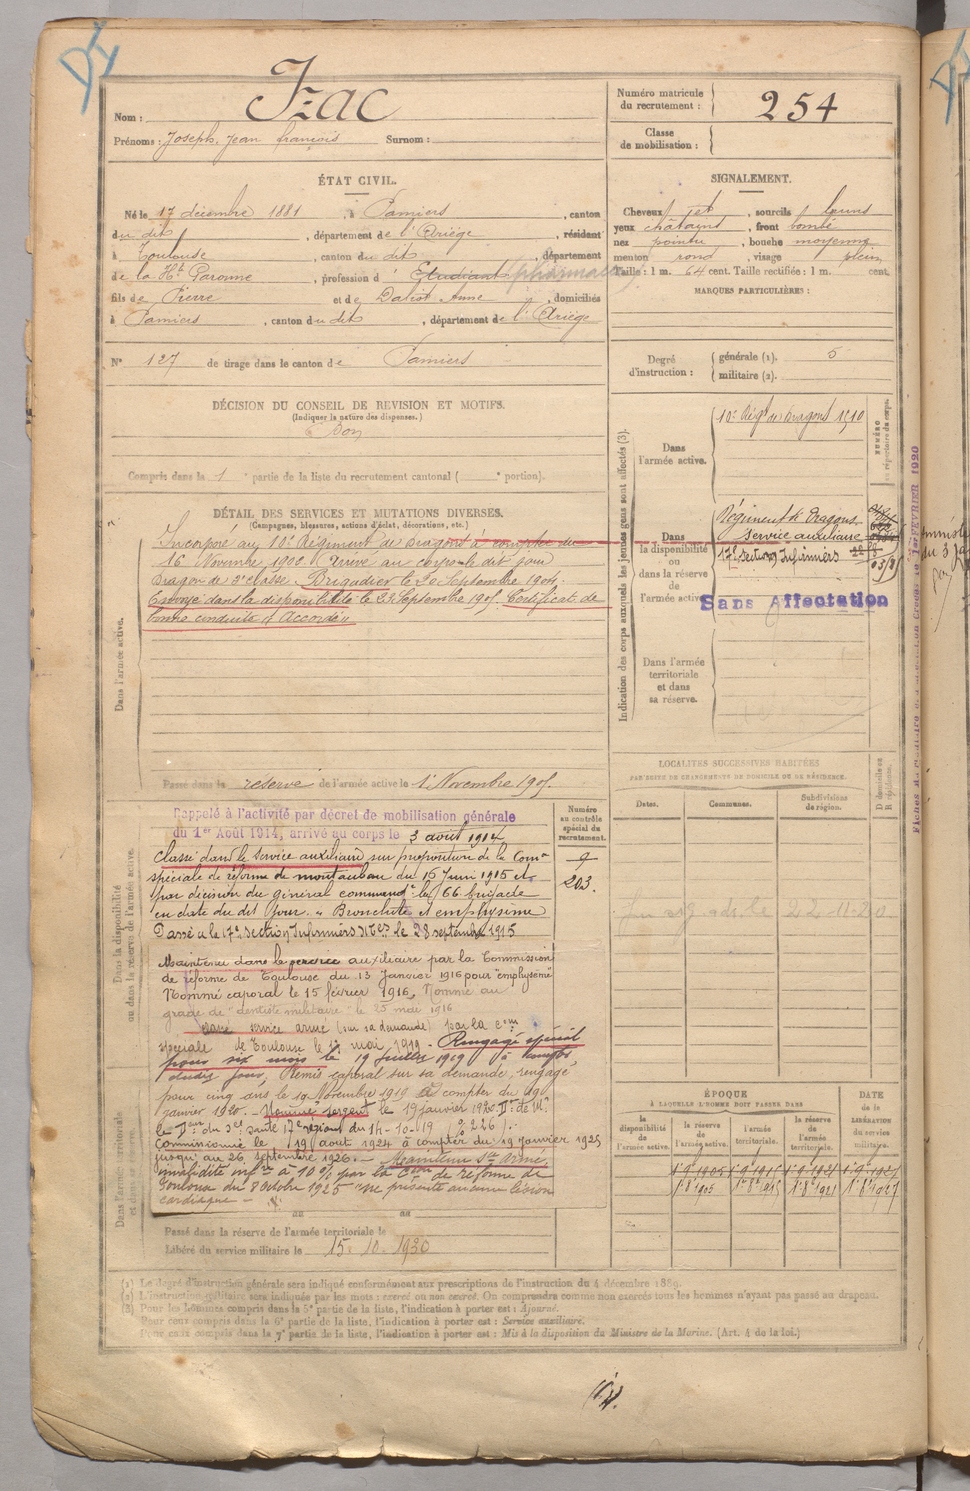 Nom : Izac
Prénoms : Joseph, Jean françois Surnom :
Numéro matricule du recrutement : 254
Classe de mobilisation :
ÉTAT CIVIL.
Né le 17 décembre 1881, à Pamiers, canton
du dit, département de l'Ariège, résidant
à Toulouse, canton du dit, département
de la Hte Garonne, profession d' Etudiant pharmacie
fils de Pierre et de Daliot Anne, domiciliés
à Pamiers, canton du dit, département de l'Ariège
SIGNALEMENT.
Cheveux jet, sourcils bruns
yeux châtains, front bombé
nez pointu, bouche moyenne
menton rond, visage plein
Taille : 1 m. 64 cent. Taille rectifiée : 1 m. cent.
MARQUES PARTICULIÈRES :
N° 127 de tirage dans le canton de Pamiers
Degré d'instruction : générale (1). 5
militaire (2).
DÉCISION DU CONSEIL DE REVISION ET MOTIFS.
(Indiquer la nature des dispenses.)
Bon
Compris dans la 1 partie de la liste du recrutement cantonal ( e portion).
DÉTAIL DES SERVICES ET MUTATIONS DIVERSES.
(Campagnes, blessures, actions d'éclat, décorations, etc.)
Dans l'armée active.
Incorporé au 10e Régiment de Dragons à compter du
16 Novembre 1902. Arrivé au corps le dit jour
Dragon de 2e classe. Brigadier le 20 Septembre 1904.
Envoyé dans la disponibilité le 23 Septembre 1905. Certificat de
bonne conduite "Accordé"
Passé dans la réserve de l'armée active le 1r Novembre 1905.
Indication des corps auxquels les jeunes gens sont affectés (3).
NUMÉRO au répertoire du corps.
Dans l'armée active.
10e Régt de Dragons 1510
Dans la disponibilité ou dans la réserve de l'armée active.
Régiment de Dragons
Service auxiliaire
17e Section Infirmiers
Sans Affectation
Dans l'armée territoriale et dans sa réserve.
LOCALITÉS SUCCESSIVES HABITÉES
PAR SUITE DE CHANGEMENTS DE DOMICILE OU DE RÉSIDENCE.
Dates.
Communes.
Subdivisions de région.
D domicile ou R résidence.
22-11-20.
Dans la disponibilité ou dans la réserve de l'armée active.
Numéro au contrôle spécial du recrutement.
203.
Rappelé à l'activité par décret de mobilisation générale
du 1er Août 1914, arrivé au corps le 3 août 1914
Classé dans le service auxiliaire sur proposition de la Comon
spéciale de réforme de montauban du 16 Juin 1915 et
par décision du général commandt la 66 brigade
en date du dit jour. "Bronchite et emphysème
Passé à la 17e Section Infirmiers Mres le 28 septembre 1915
Maintenu dans le service auxiliaire par la Commission
de réforme de Toulouse du 13 Janvier 1916 pour "emphysème"
Nommé caporal le 15 février 1916, Nommé au
grade de "dentiste militaire" le 25 mai 1916
Classé service armé (sur sa demande) par la com
spéciale de Toulouse le mai 1919. Rengagé spécial
pour six mois le 19 juillet 1919 à compter
dudit jour. Remis caporal sur sa demande, rengagé
pour cinq ans le 19 Novembre 1919 à compter du 19
janvier 1920. Nommé sergent le 19 janvier 1920.
du 14-10-19
Commissionné le 19 août 1924 à compter du 19 janvier 1925
jusqu'au 26 Septembre 1926. Maintenu Sce Armé,
invalidité infre à 10% par la Com de réforme de
Toulouse du 8 Octobre 1925 "ne présente aucune lésion
cardiaque
Dans l'armée territoriale et dans sa réserve.
Passé dans la réserve de l'armée territoriale le
Libéré du service militaire le 15. 10. 1930
ÉPOQUE
À LAQUELLE L'HOMME DOIT PASSER DANS
la disponibilité de l'armée active.
la réserve de l'armée active.
l'armée territoriale.
la réserve de l'armée territoriale.
DATE de la LIBÉRATION du service militaire.
(1) Le degré d'instruction générale sera indiqué conformément aux prescriptions de l'instruction du 4 décembre 1889.
(2) L'instruction militaire sera indiquée par les mots : exercé ou non exercé. On comprendra comme non exercés tous les hommes n'ayant pas passé au drapeau.
(3) Pour les hommes compris dans la 5e partie de la liste, l'indication à porter est : Ajourné.
Pour ceux compris dans la 6e partie de la liste, l'indication à porter est : Service auxiliaire.
Pour ceux compris dans la 7e partie de la liste, l'indication à porter est : Mis à la disposition du Ministre de la Marine. (Art. 4 de la loi.)